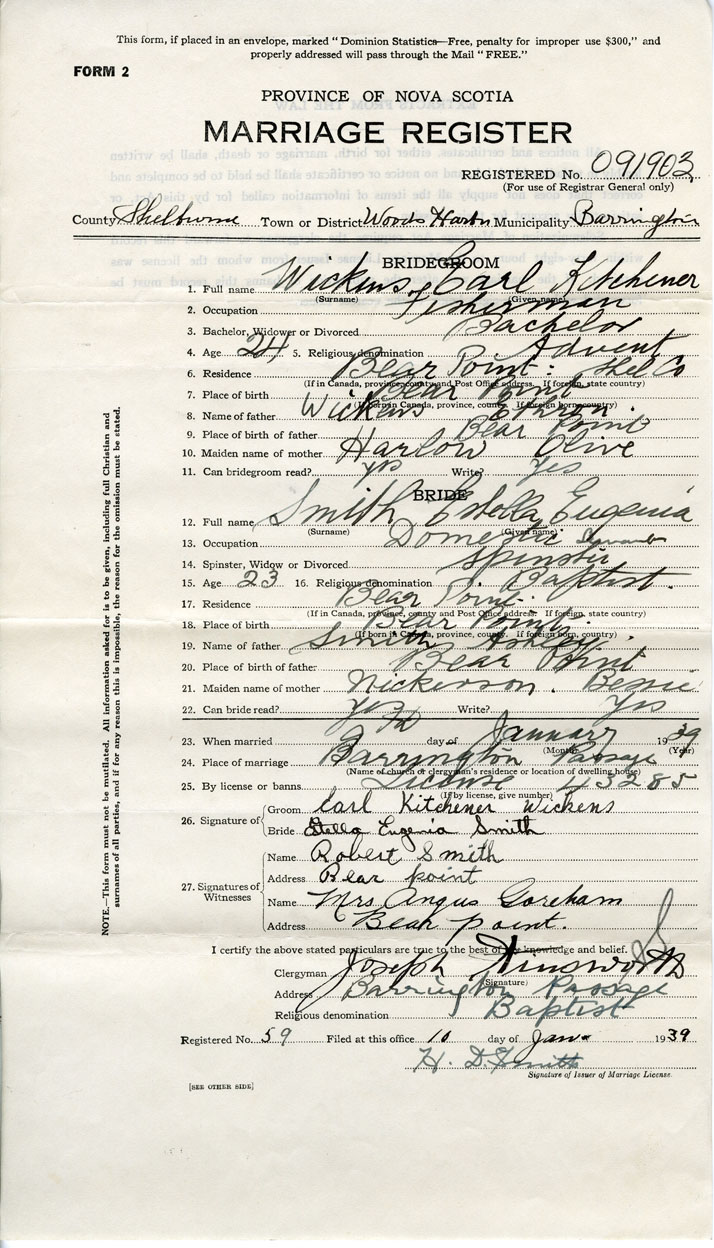 This form, if placed in an envelope, marked "Dominion Statistics—Free, penalty for improper use $300," and
properly addressed will pass through the Mail "FREE."
FORM 2
PROVINCE OF NOVA SCOTIA
MARRIAGE REGISTER
REGISTERED No. 091903
(For use of Registrar General only)
County Shelburne Town or District Woods Harbr Municipality Barrington
BRIDEGROOM
1. Full name Wickens, Carl Kitchener
(Surname) (Given name)
2. Occupation Fisherman
3. Bachelor, Widower or Divorced Bachelor
4. Age 24 5. Religious denomination Advent
6. Residence Bear Point: Shel Co
(If in Canada, province, county and Post Office address. If foreign, state country)
7. Place of birth Bear Point
(If born in Canada, province, county. If foreign born, country)
8. Name of father Wickens
9. Place of birth of father Bear Point
10. Maiden name of mother Harlow Olive
11. Can bridegroom read? yes Write? yes
BRIDE
12. Full name Smith Estella Eugenia
(Surname) (Given name)
13. Occupation Domestic Servant
14. Spinster, Widow or Divorced Spinster
15. Age 23 16. Religious denomination Baptist.
17. Residence Bear Point.
(If in Canada, province, county and Post Office address. If foreign, state country)
18. Place of birth Bear Point.
(If born in Canada, province, county. If foreign born, country.)
19. Name of father Smith
20. Place of birth of father Bear Point
21. Maiden name of mother Nickerson. Bessie
22. Can bride read? yes Write? Yes
23. When married day of January 1939
(Month) (Year)
24. Place of marriage Barrington Passage
(Name of church or clergyman's residence or location of dwelling house)
25. By license or banns License 43285
(If by license, give number)
26. Signature of Groom Carl Kitchener Wickens
Bride Stella Eugenia Smith
27. Signatures of Witnesses
Name Robert Smith
Address Bear point
Name Mrs Angus Goreham
Address Bear point.
I certify the above stated particulars are true to the best of the knowledge and belief.
Clergyman Joseph Ainsworth
(Signature)
Address Barrington Passage
Religious denomination Baptist
Registered No. 59 Filed at this office 10 day of Jan 1939
H. D. Smith
Signature of Issuer of Marriage License.
[SEE OTHER SIDE]
NOTE.—This form must not be mutilated. All information asked for is to be given, including full Christian and
surnames of all parties, and if for any reason this is impossible, the reason for the omission must be stated.